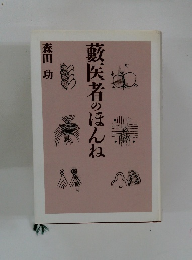 藪医者のほんね
森田 功